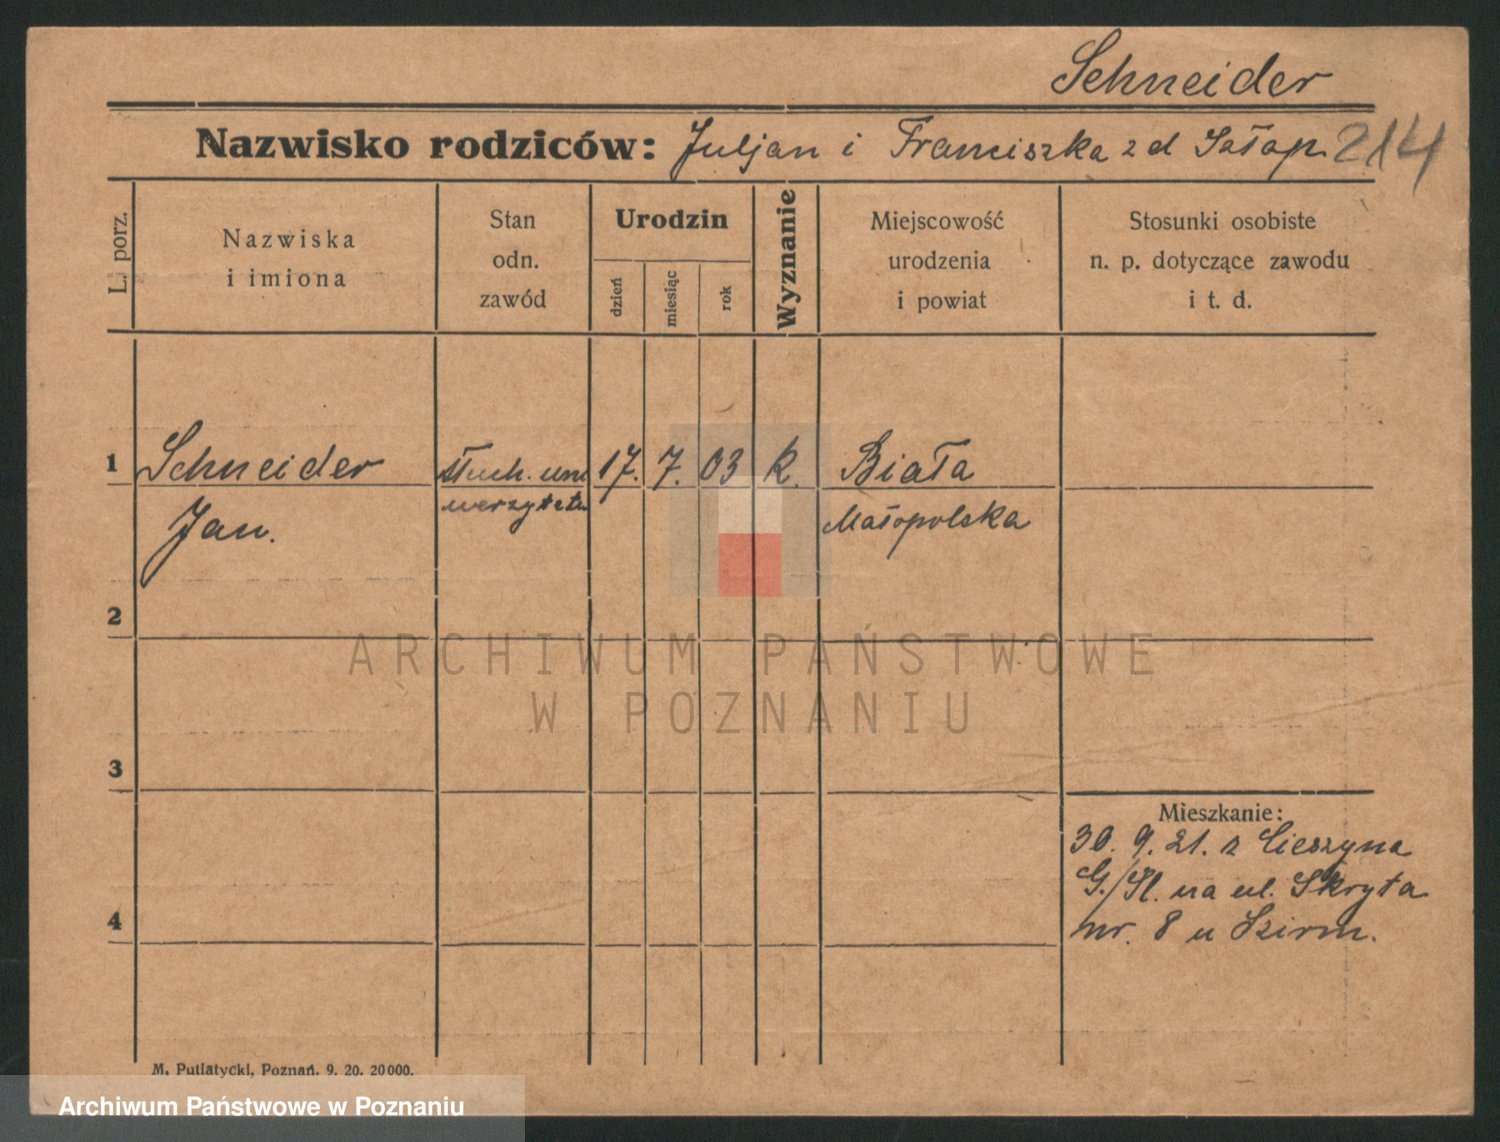 Schneider
Nazwisko rodziców: Juljan i Franciszka z d Sałap. 214
L. porz.
Nazwiska
i imiona
Stan
odn.
zawód
Urodzin
dzień
miesiąc
rok
Wyznanie
Miejscowość
urodzenia
i powiat
Stosunki osobiste
n. p. dotyczące zawodu
i t. d.
1 Schneider słuch. uni 17. 7. 03 k. Biała
Jan. wersytetu Małopolska
2
ARCHIWUM PAŃSTWOWE
W POZNANIU
3
Mieszkanie:
30. 9. 21. z Cieszyna
G./Śl. na ul. Skryta
4 nr. 8 u Szirm.
M. Putiatycki, Poznań. 9. 20. 20000.
Archiwum Państwowe w Poznaniu